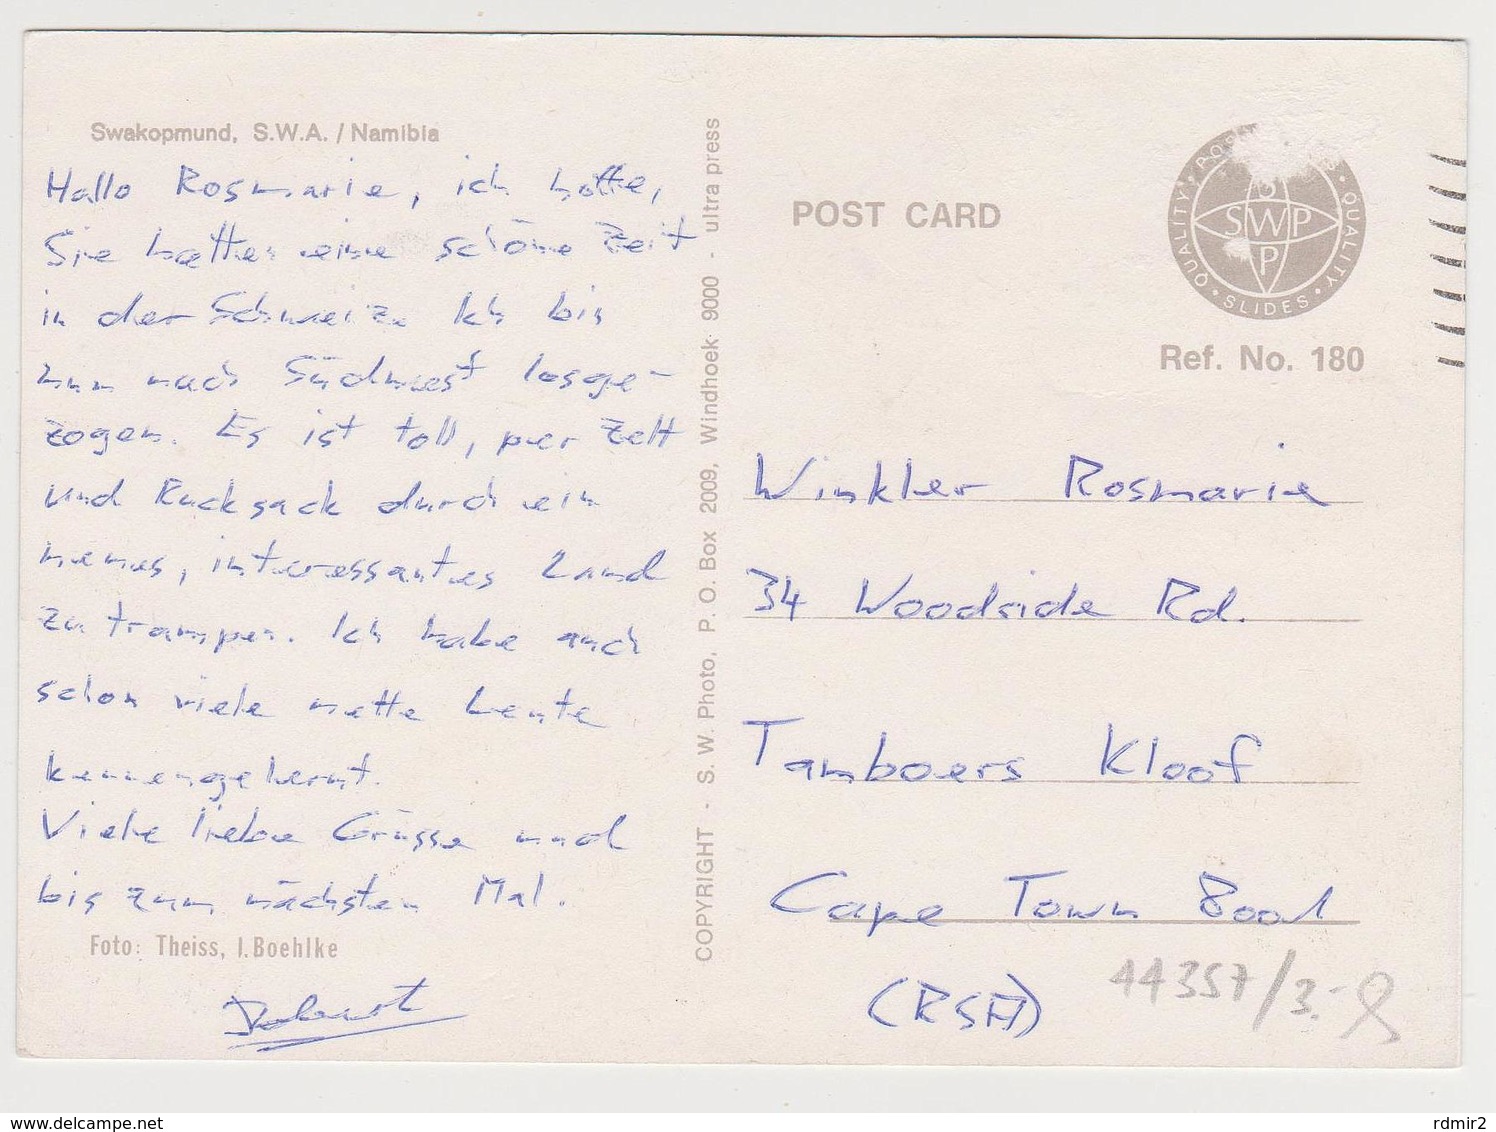 Swakopmund, S.W.A. / Namibia
Hallo Rosmarie, ich hoffe,
Sie hatten eine schöne Zeit
in der Schweiz. Ich bin
nun nach Südwest losge-
zogen. Es ist toll, per Zelt
und Rucksack durch ein
neues, interessantes Land
zu trampen. Ich habe auch
schon viele nette Leute
kennengelernt.
Viele liebe Grüsse und
bis zum nächsten Mal.
Foto: Theiss, I. Boehlke
COPYRIGHT - S. W. Photo, P. O. Box 2009, Windhoek 9000 - ultra press
POST CARD
QUALITY
QUALITY
SLIDES
SWP
P
Ref. No. 180
Winkler Rosmarie
34 Woodside Rd.
Tamboers Kloof
Cape Town 8001
(RSA)
44357/3.-
delcampe.net
rdmir2